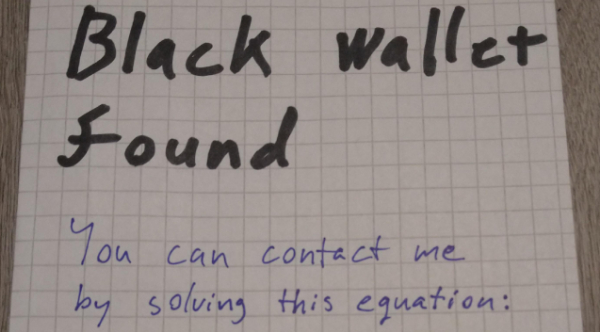 Black wallet
Found
You can contact me
by solving this equation: